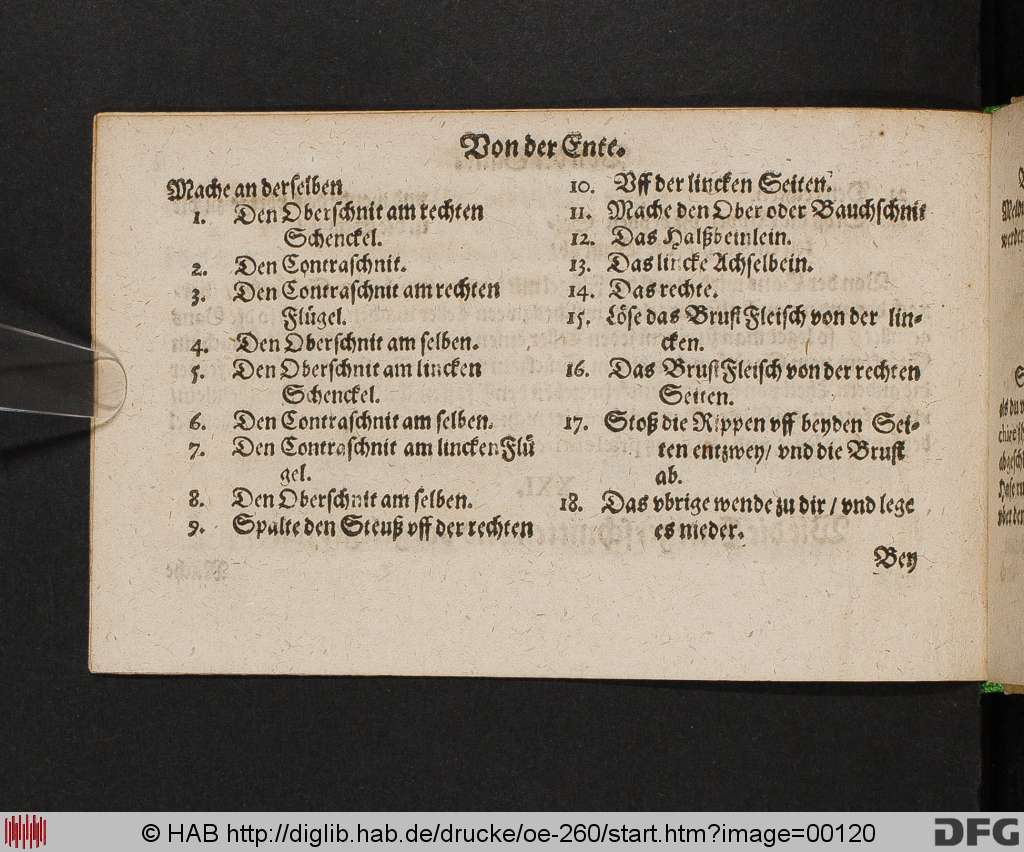 Von der Ente.
Mache an derselben
1. Den Oberschnit am rechten
Schenckel.
2. Den Contraschnit.
3. Den Contraschnit am rechten
Flügel.
4. Den Oberschnit am selben.
5. Den Oberschnit am lincken
Schenckel.
6. Den Contraschnit am selben.
7. Den Contraschnit am lincken Flü
gel.
8. Den Oberschnit am selben.
9. Spalte den Steuß vff der rechten
10. Vff der lincken Seiten.
11. Mache den Ober oder Bauchschnit
12. Das Halßbeinlein.
13. Das lincke Achselbein.
14. Das rechte.
15. Löse das Brust Fleisch von der lin-
cken.
16. Das Brust Fleisch von der rechten
Seiten.
17. Stoß die Rippen vff beyden Sei-
ten entzwey / vnd die Brust
ab.
18. Das vbrige wende zu dir / vnd lege
es nieder.
Bey
© HAB http://diglib.hab.de/drucke/oe-260/start.htm?image=00120
DFG